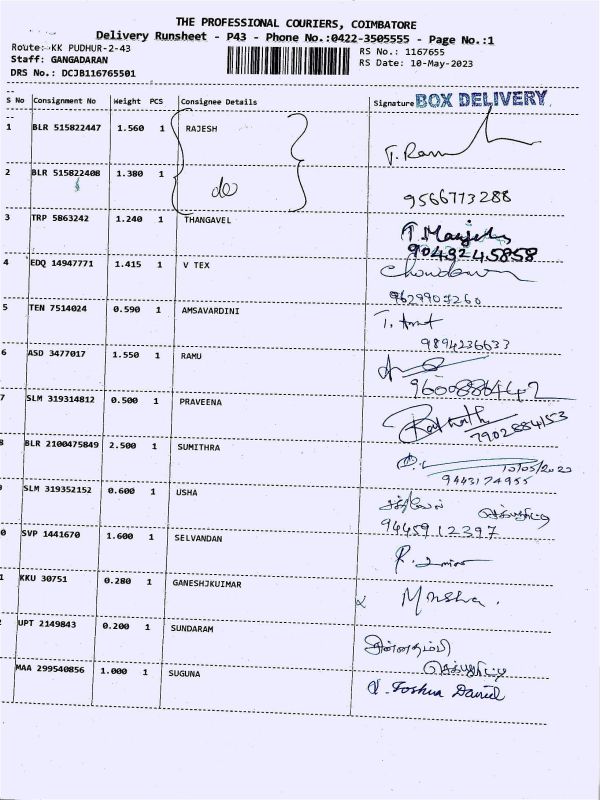 THE PROFESSIONAL COURIERS, COIMBATORE
Delivery Runsheet - P43 - Phone No.:0422-3505555 - Page No.:1
Route: KK PUDHUR-2-43 RS No.: 1167655
Staff: GANGADARAN RS Date: 10-May-2023
DRS No.: DCJB116765501
S No Consignment No Weight PCS Consignee Details Signature BOX DELIVERY
1 BLR 515822447 1.560 1 RAJESH
T. Ram
2 BLR 515822408 1.380 1 do 9566773288
3 TRP 5863242 1.240 1 THANGAVEL
9049245858
4 EDQ 14947771 1.415 1 V TEX
5 TEN 7514024 0.590 1 AMSAVARDINI
9894236633
6 ASD 3477017 1.550 1 RAMU
7 SLM 319314812 0.500 1 PRAVEENA
7902884153
8 BLR 2100475849 2.500 1 SUMITHRA
10/05/2023
9443174955
9 SLM 319352152 0.600 1 USHA
9445912397
0 SVP 1441670 1.600 1 SELVANDAN
1 KKU 30751 0.280 1 GANESHJKUIMAR
UPT 2149843 0.200 1 SUNDARAM
சின்னதம்பி
MAA 299540856 1.000 1 SUGUNA
V. Joshua Daniel